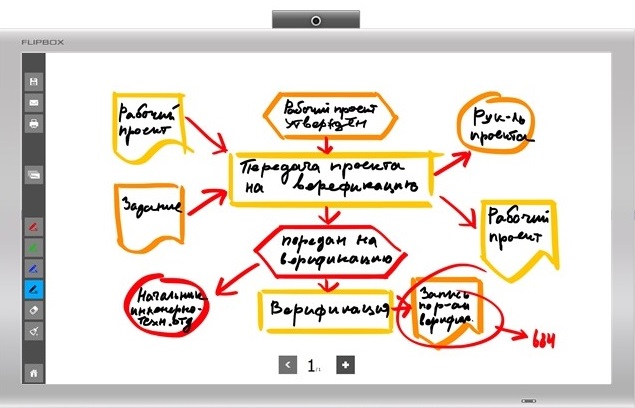 FLIPBOX
Рабочий
проект
Рабочий проект
утверждён
Рук-ль
проекта
Передача проекта
на верефикацию
Задание
Рабочий
проект
передан на
верификацию
Начальник
инженерно-
техн. отд
Верификация
Запись
верифик.
1/1